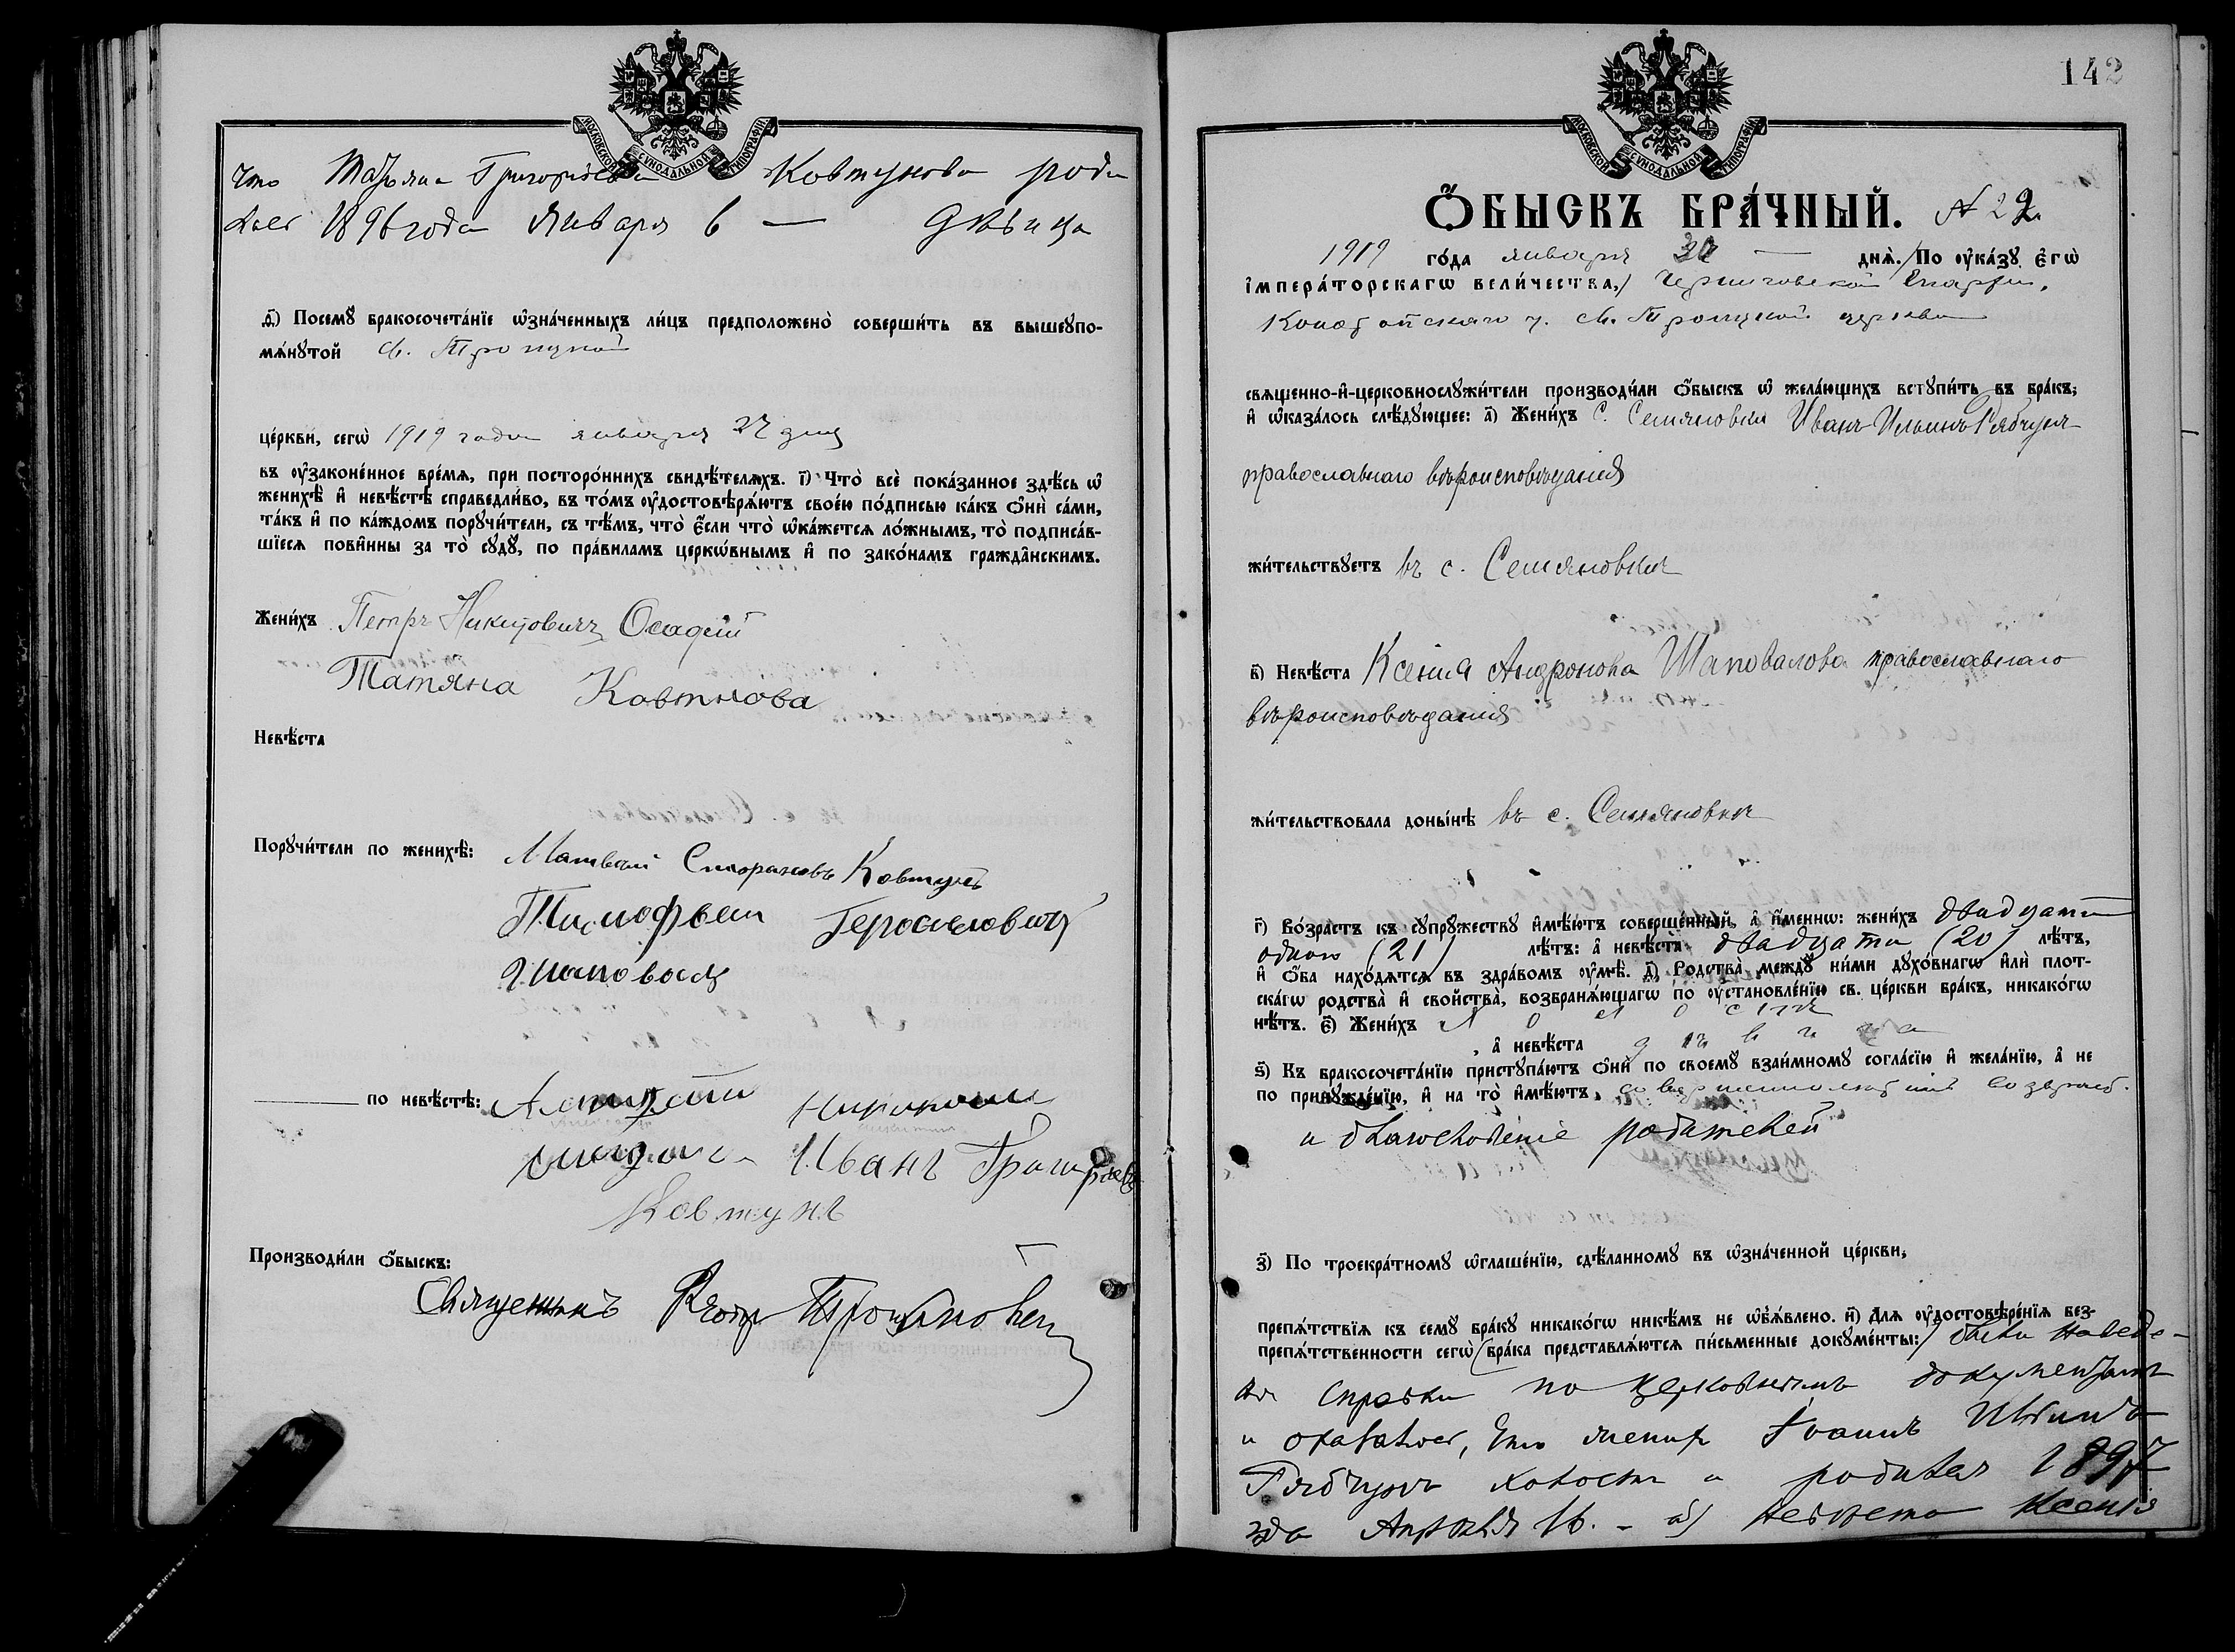 МОСКОВСКОЙ СѴНОДАЛЬНОЙ ТИПОГРАФІИ
что Татьяна Григорьева Ковтунова роди
лась 1896 года Января 6 — дѣвица
д҃) Посемꙋ бракосочета́нїе ѡ҆зна́ченныхъ ли́цъ предположено̀ соверши́ть въ вышеꙋпо-
мѧ́нꙋтой Св. Троицкой
це́ркви, сегѡ̀ 1919 года января 27 дня
въ ᲂу҆законе́нное вре́мѧ, при посторо́ннихъ свидѣ́телѧхъ. і҃) Что̀ всѐ пока́занное здѣ́сь ѡ҆
женихѣ̀ и҆ невѣ́стѣ справедли́во, въ то́мъ ᲂу҆достовѣрѧ́ютъ свое́ю по́дписью ка́къ ѻ҆нѝ са́ми,
та́къ и҆ по ка́ждомъ порꙋчи́тели, съ тѣ́мъ, что̀ є҆́сли что̀ ѡ҆ка́жетсѧ ло́жнымъ, то̀ подписа́в-
шїесѧ пови́нны за то̀ сꙋдꙋ̀, по пра́виламъ церкѡ́внымъ и҆ по зако́намъ гражда́нскимъ.
Жени́хъ Петръ Никитовичъ Осадчій
Татяна Ковтнова
Невѣ́ста
Порꙋчи́тели по женихѣ̀: Матвѣй Ковтунъ
Тимофѣй
Шаповалъ
по невѣ́стѣ:
Иванъ Григорьевъ
Ковтунъ
Производи́ли ѻ҆́быскъ:
Священникъ
142
МОСКОВСКОЙ СѴНОДАЛЬНОЙ ТИПОГРАФІИ
Ѻ҆́БЫСКЪ БРА́ЧНЫЙ. № 22
1919 го́да января днѧ̀. / По ᲂу҆ка́зꙋ є҆гѡ̀
і҆мпера́торскагѡ вели́чества, / Черниговской Епархіи,
Конотопскаго у. Св. Троицкой церкви
свѧщенно-и҆-церковнослꙋжи́тели производи́ли ѻ҆́быскъ ѡ҆ жела́ющихъ встꙋпи́ть въ бра́къ,
и҆ ѡ҆каза́лось слѣ́дꙋющее: а҃) Жени́хъ с. Семяновки Иванъ Ильинъ Рябчунъ
православнаго вѣроисповѣданія
жи́тельствꙋетъ въ с. Семяновкѣ
в҃) Невѣ́ста Ксенія Андронова Шаповалова православнаго
вѣроисповѣданія
жи́тельствовала доны́нѣ въ с. Семяновкѣ
г҃) Во́зрастъ къ сꙋпрꙋ́жествꙋ и҆мѣ́ютъ соверше́нный, а҆ и҆́менно: жени́хъ двадцати
одного (21) лѣ́тъ: а҆ невѣ́ста двадцати (20) лѣ́тъ,
и҆ ѻ҆́ба нахо́дѧтсѧ въ здра́вомъ ᲂу҆мѣ̀. д҃) Родства̀ междꙋ̀ ни́ми дꙋхо́внагѡ и҆лѝ плот-
ска́гѡ родства̀ и҆ сво́йства, возбранѧ́ющагѡ по ᲂу҆становле́нїю св. це́ркви бра́къ, никако́гѡ
нѣ́тъ. є҃) Жени́хъ холостъ
, а҆ невѣ́ста дѣвица
ѕ҃) Къ бракосочета́нїю пристꙋпа́ютъ ѻ҆нѝ по своемꙋ̀ взаи́мномꙋ согла́сїю и҆ жела́нїю, а҆ не
по принꙋжде́нїю, и҆ на то̀ и҆мѣ́ютъ, совершеннолѣтній возрастъ
и благословеніе родителей
з҃) По троекра́тномꙋ ѡ҆глаше́нїю, сдѣ́ланномꙋ въ ѡ҆зна́ченной це́ркви,
препѧ́тствїѧ къ семꙋ̀ бра́кꙋ никако́гѡ никѣ́мъ не ѡ҆б̾ѧ́влено. и҃) Длѧ̀ ᲂу҆достовѣре́нїѧ без-
препѧ́тственности сегѡ̀ (бра́ка представлѧ́ютсѧ пи́сьменные докꙋме́нты: ) были наведе-
ны справки по церковнымъ документамъ
и оказалось, что женихъ Іоаннъ Ильинъ
Рябчунъ холостъ и родился 1897
года Апрѣля 16. - а) невѣста Ксенія